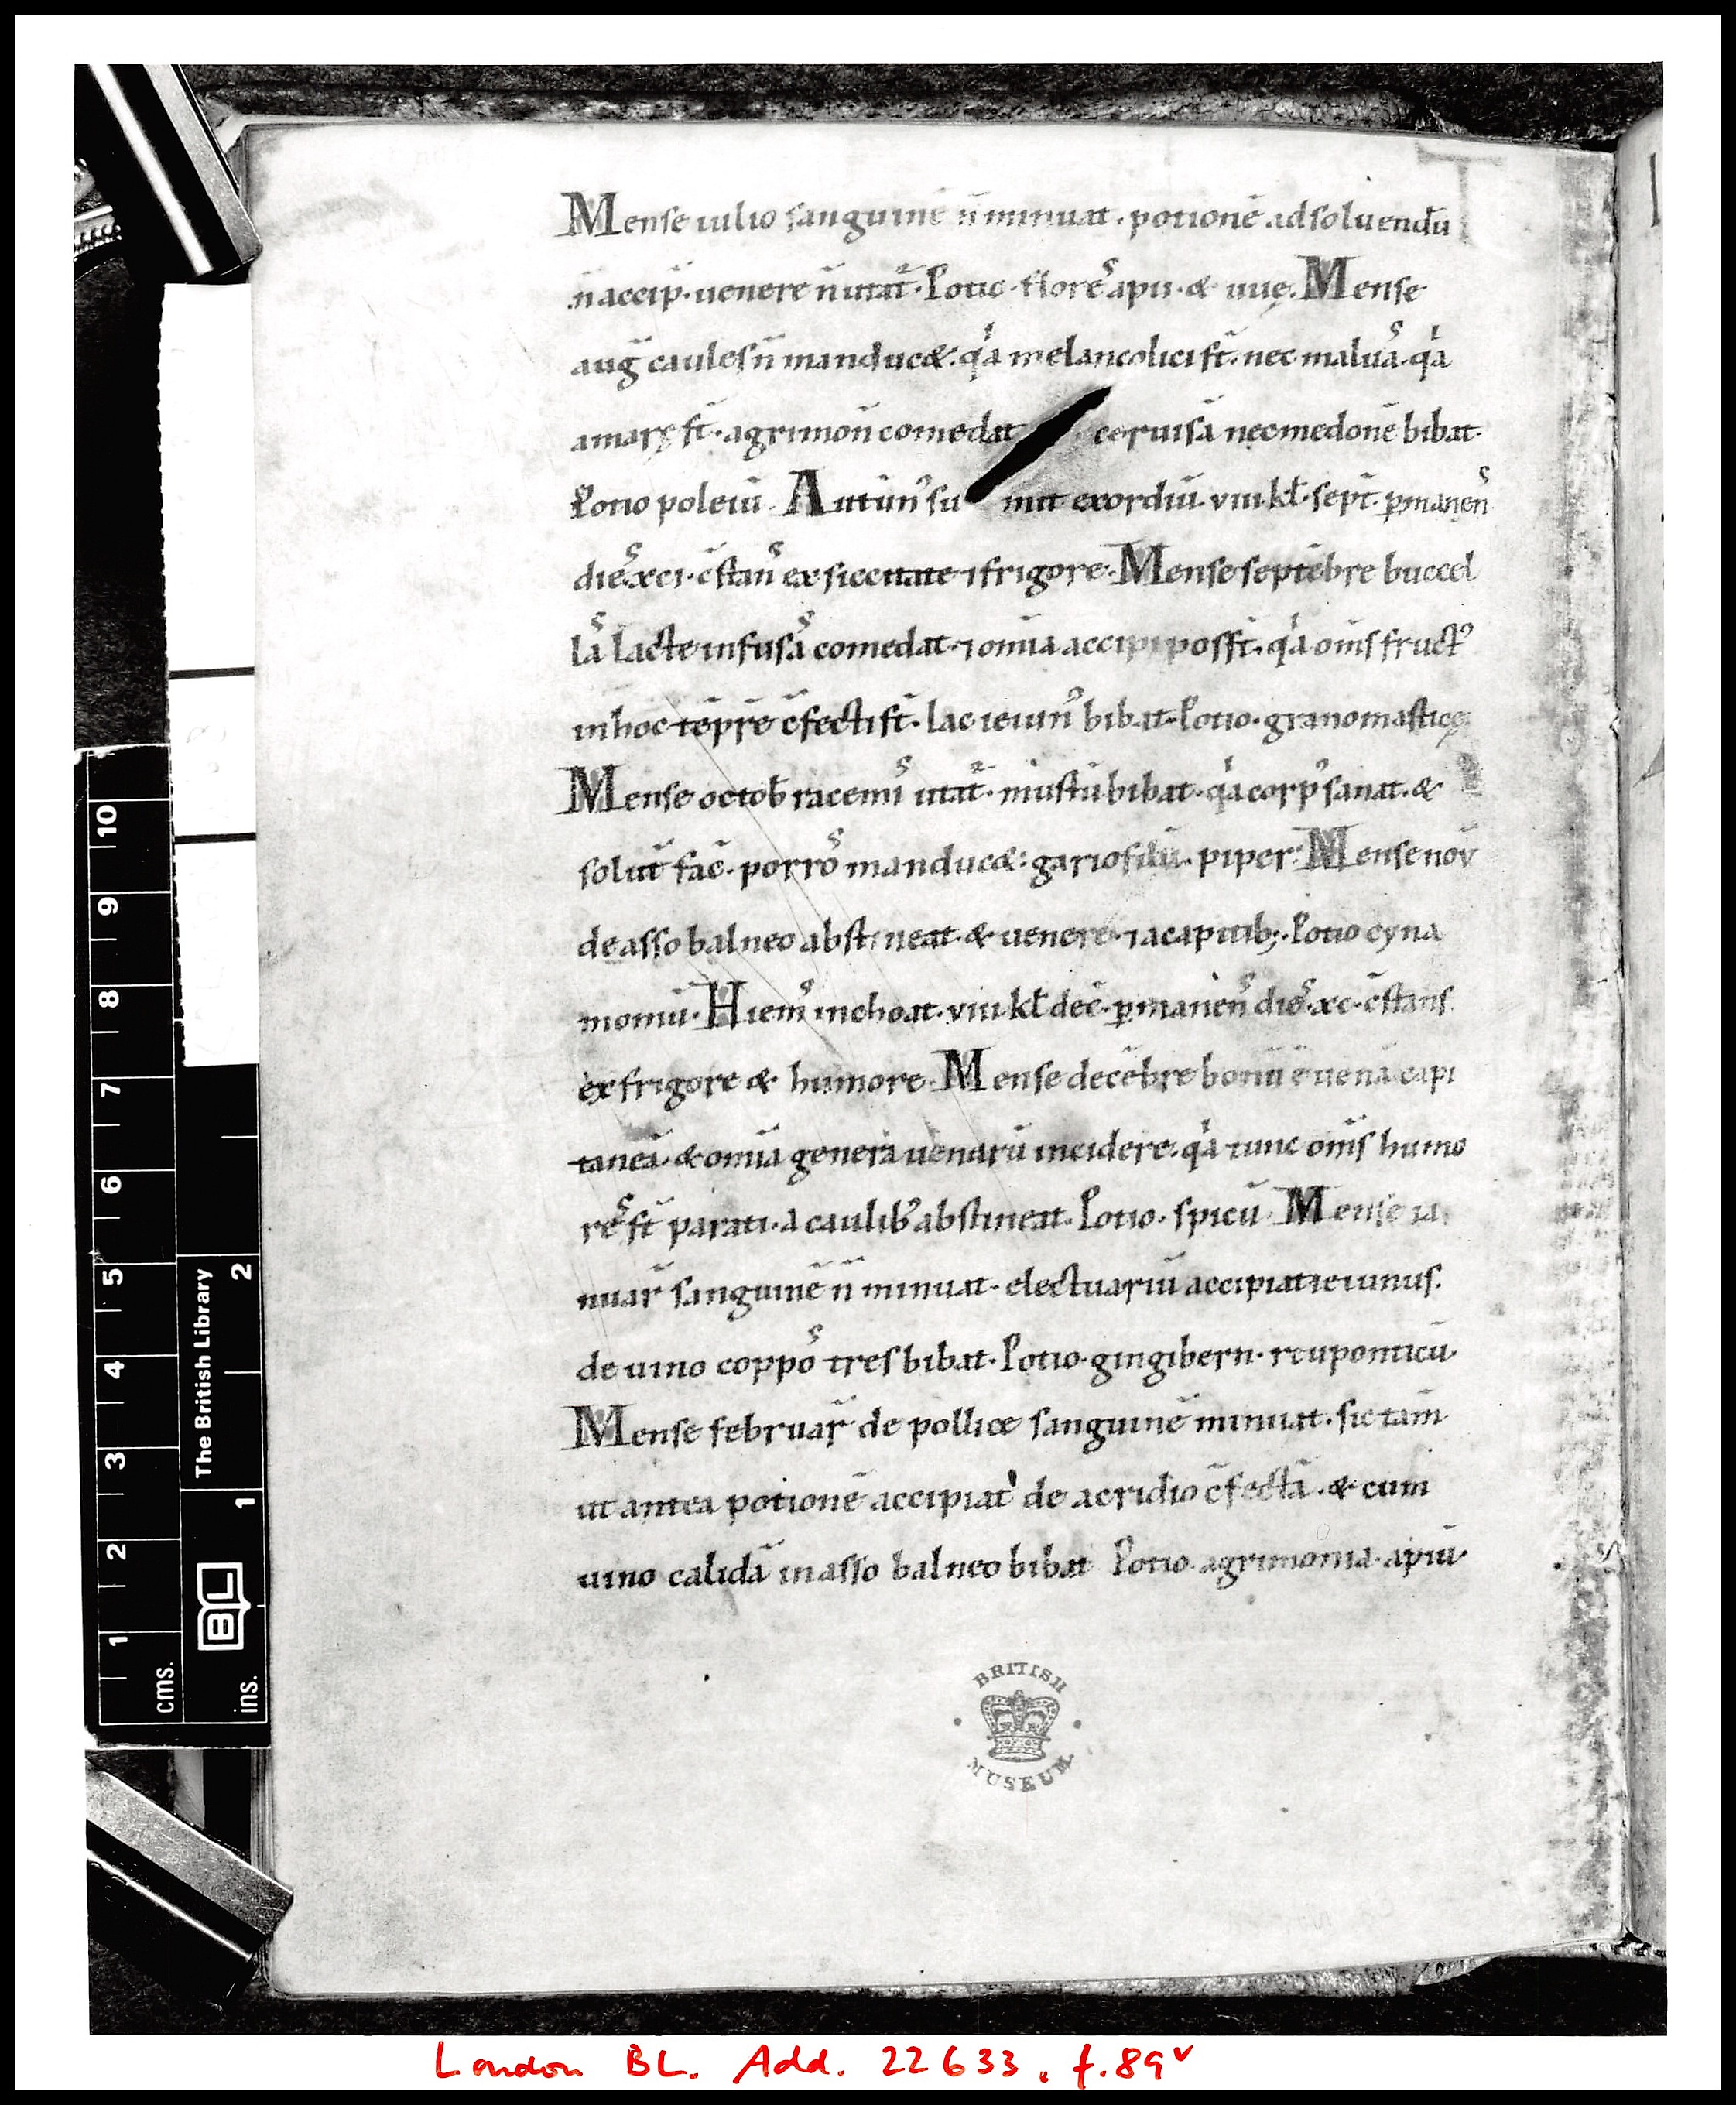 Mense iulio sanguinē n̄ minuat · potionē ad soluendū
n̄ accip̄ · uenere n̄ utat᷑ · Potio · florēˢ apii · & uuę · Mense
auḡ caules n̄ manduc& · qͥa melancolici st̄ · nec maluāˢ · qͥa
amarę st̄ · agrimon̄ comedat ceruisā nec medonē bibat ·
Potio poleiū · Autūn᾽ su mit exordiū · viii · kł · sept̄ · ꝑmanen̄ˢ
diēˢ · xci · c̄stan̄ˢ ex siccitate ⁊ frigore · Mense septēbre buccel
lāˢ lacte infusāˢ comedat · ⁊ om̄ia accipi poss̄t · qͥa om̄s fruct᾽
in hoc tēpr̄e c̄fecti st̄ · lac ieiun᾽ bibat · Potio · grano mastice
Mense octob̄ racemīˢ utat᷑ · mustū bibat · qͥa corp᾽ sanat · &
solut̄ fac̄ · porrōˢ manduc& · gariofilū · piper · Mense nov̄
de asso balneo abstineat · & uenere · ⁊ a capitib; · Potio cyna
momū · Hiem᾽ inchoat · viii · kł dec̄ · ꝑmanen̄ˢ diēˢ · xc · c̄stans
ex frigore & humore · Mense decēbre bonū ē uenā capi
taneā · & om̄ia genera uenarū incidere · qͥa tunc om̄s humo
rēˢ st̄ parati · a caulib᾽ abstineat · Potio · spicū · Mense ia
nuar̄ sanguinē n̄ minuat · electuariū accipiat ieiunus ·
de uino coppōˢ tres bibat · Potio · gingibern · reuponticū ·
Mense februar̄ de pollice sanguinē minuat · sic tam̄
ut antea potionē accipiat de acridio c̄fectā · & cum
uino calidā in asso balneo bibat Potio · agrimonia · apiū ·
BRITISH
MUSEUM
The British Library
BL
cms.
1 2 3 4 5 6 7 8 9 10
ins.
1 2
London BL. Add. 22633, f.89ᵛ